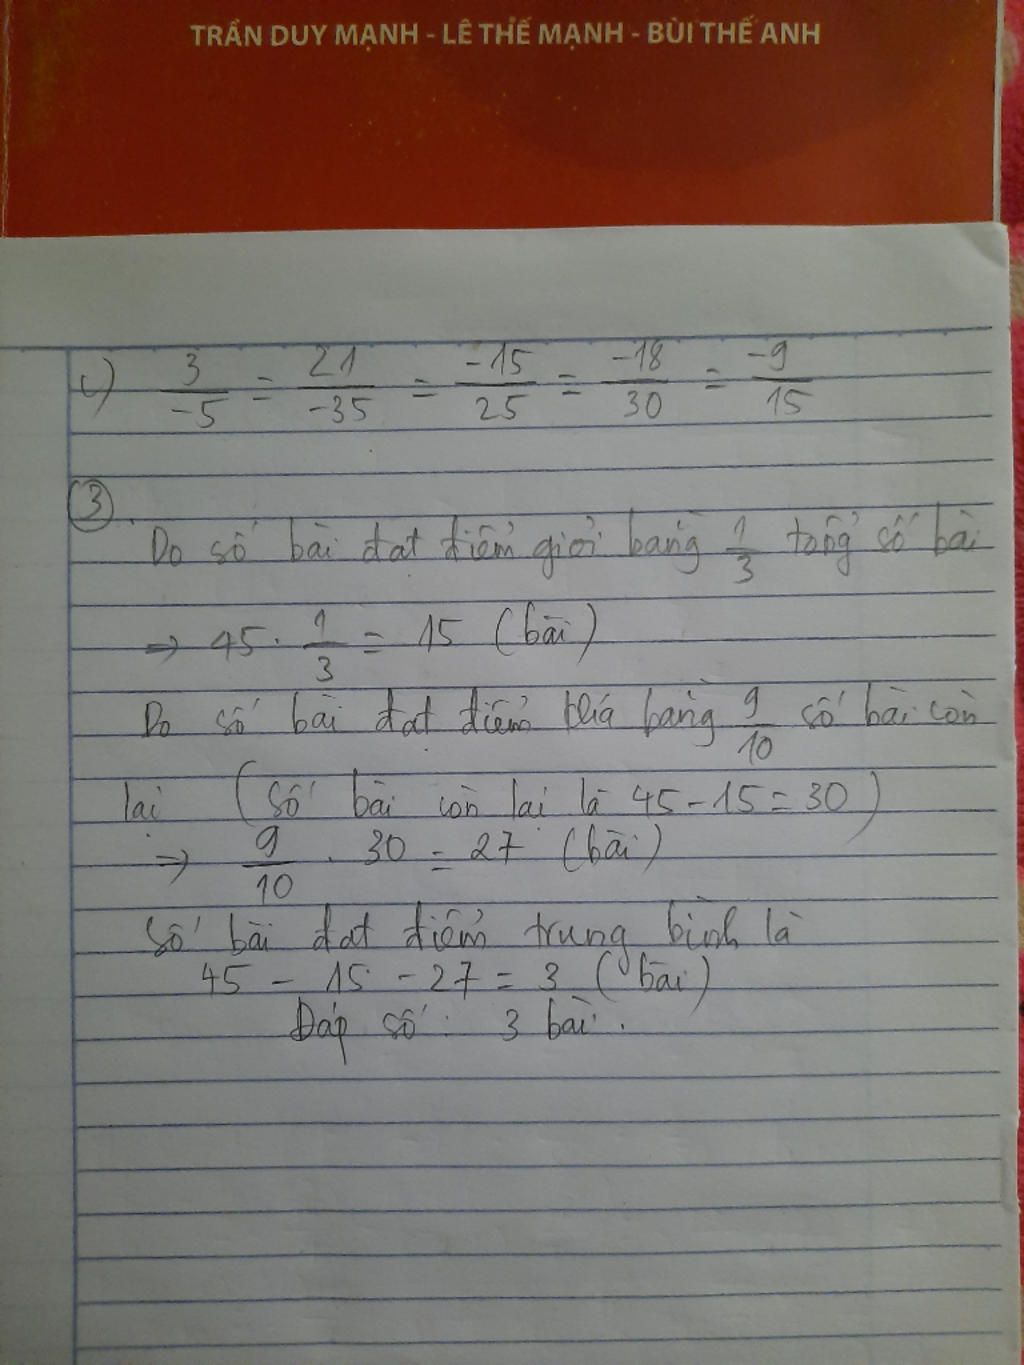 TRẦN DUY MẠNH - LÊ THẾ MẠNH - BÙI THẾ ANH
c) 3/-5 = 21/-35 = -15/25 = -18/30 = -9/15
3.
Do số bài đạt điểm giỏi bằng 1/3 tổng số bài
=> 45 . 1/3 = 15 (bài)
Do số bài đạt điểm khá bằng 9/10 số bài còn
lại (số bài còn lại là 45 - 15 = 30)
=> 9/10 . 30 = 27 (bài)
Số bài đạt điểm trung bình là
45 - 15 - 27 = 3 (bài)
Đáp số : 3 bài.